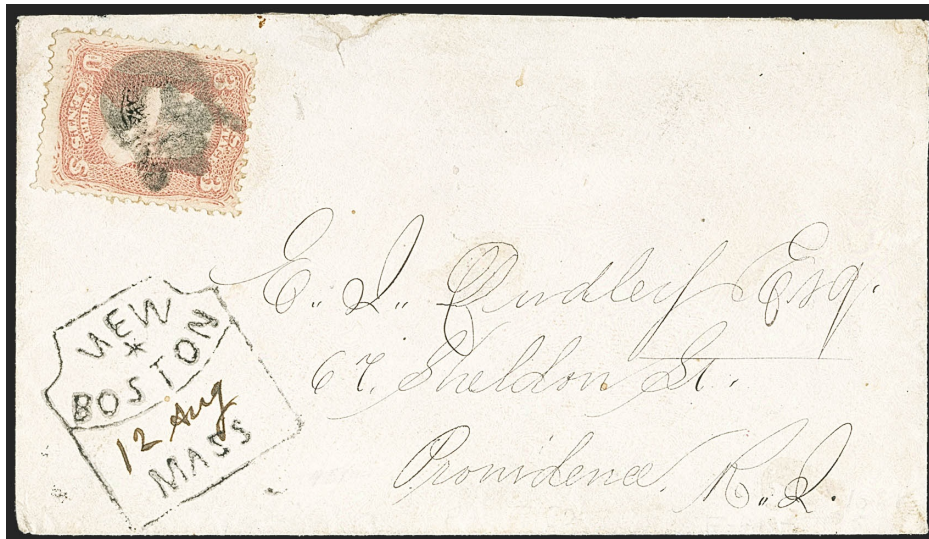 U 3
CENTS
S 3
NEW
*
BOSTON
12 Aug
MASS
E. I. Dudley Esq.
67. Sheldon St.
Providence, R.I.